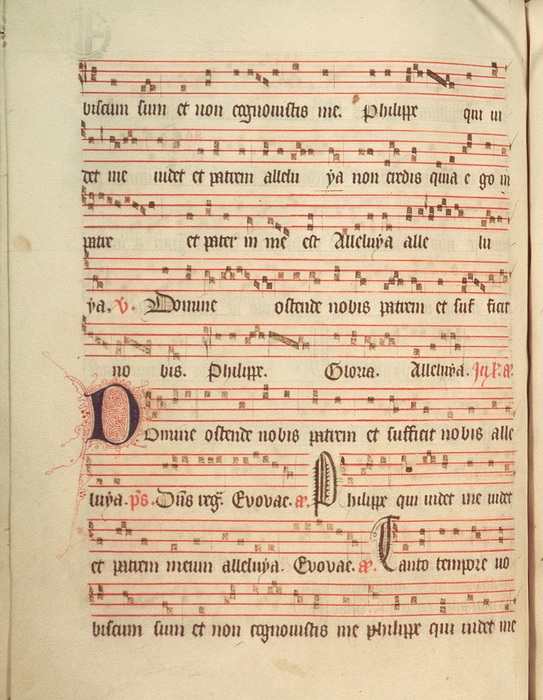 biscum sum et non cognouistis me. Philippe qui ui
det me uidet et patrem allelu ya non credis quia e go in
patre et pater in me est Alleluya alle lu
ya. v. Domine ostende nobis patrem et suf ficit
no bis. Philippe. Gloria. Alleluya.
Domine ostende nobis patrem et sufficit nobis alle
luya. ps. Dns reg. Evovae. a. Philippe qui uidet me uidet
et patrem meum alleluya. Evovae. a. Tanto tempore uo
biscum sum et non cognouistis me philippe qui uidet me